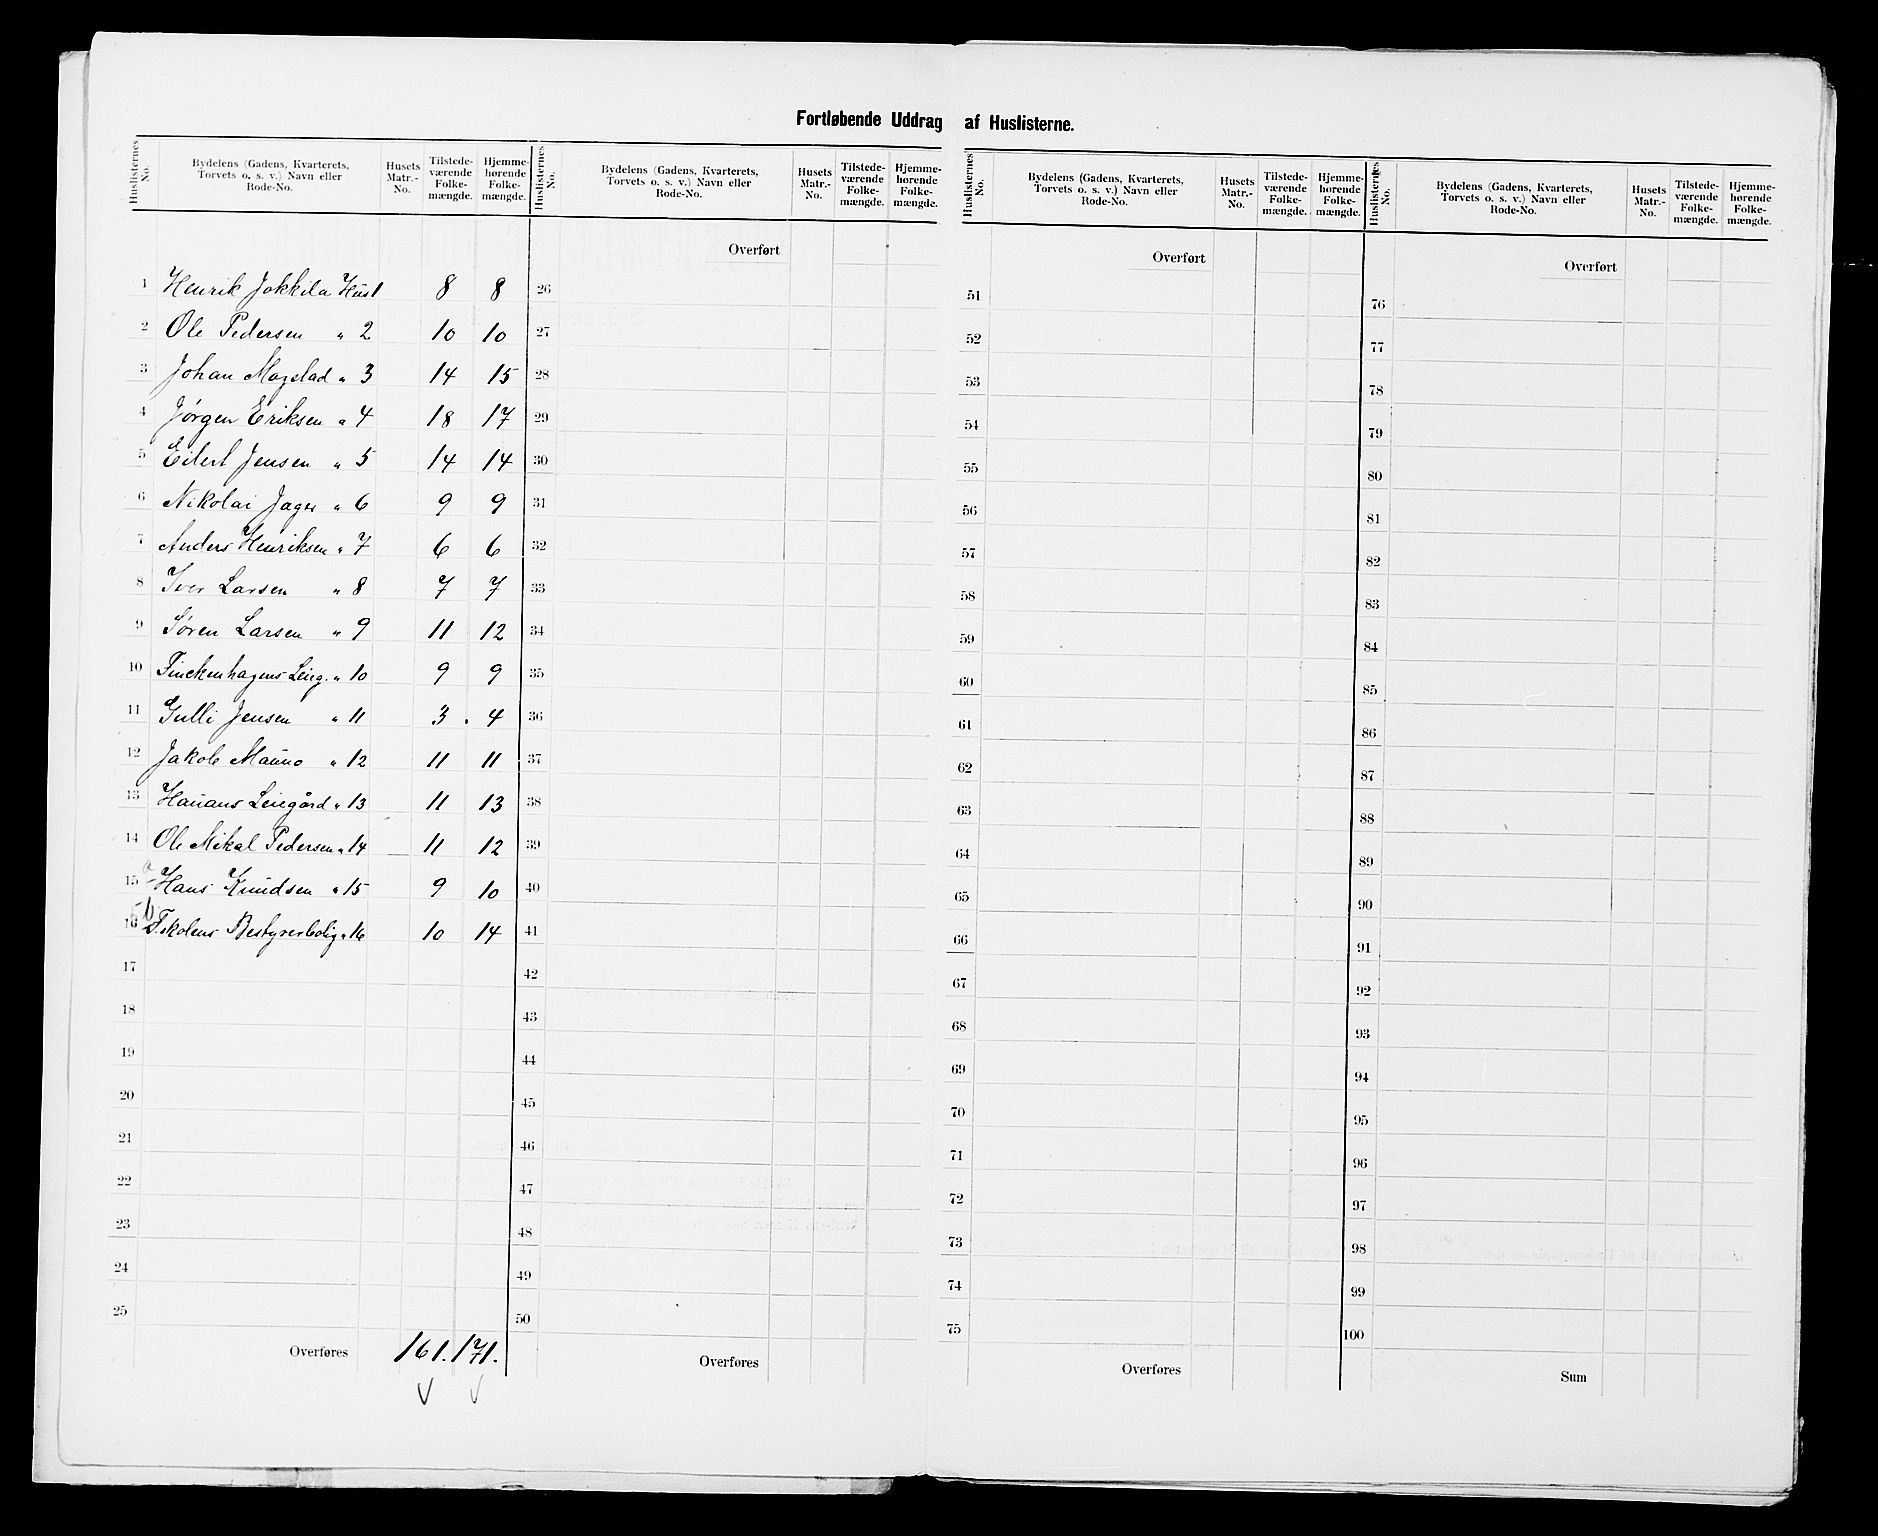 Fortløbende Uddrag af Huslisterne.
Huslisternes No. Bydelens (Gadens, Kvarterets, Torvets o. s. v.) Navn eller Rode-No. Husets Matr.-No. Tilstedeværende Folkemængde. Hjemmehørende Folkemængde.
Huslisternes No. Bydelens (Gadens, Kvarterets, Torvets o. s. v.) Navn eller Rode-No. Husets Matr.-No. Tilstedeværende Folkemængde. Hjemmehørende Folkemængde.
Huslisternes No. Bydelens (Gadens, Kvarterets, Torvets o. s. v.) Navn eller Rode-No. Husets Matr.-No. Tilstedeværende Folkemængde. Hjemmehørende Folkemængde.
Huslisternes No. Bydelens (Gadens, Kvarterets, Torvets o. s. v.) Navn eller Rode-No. Husets Matr.-No. Tilstedeværende Folkemængde. Hjemmehørende Folkemængde.
Overført Overført Overført
1 Henrik Jokkila Hus 1 8 8 26 51 76
2 Ole Pedersen " 2 10 10 27 52 77
3 Johan " 3 14 15 28 53 78
4 Jørgen Eriksen " 4 18 17 29 54 79
5 Eilert Jensen " 5 14 14 30 55 80
6 Nikolai Jager " 6 9 9 31 56 81
7 Anders Henriksen " 7 6 6 32 57 82
8 Iver Larsen " 8 7 7 33 58 83
9 Søren Larsen " 9 11 12 34 59 84
10 Finckenhagens Leieg. " 10 9 9 35 60 85
11 Gulli Jensen " 11 3 4 36 61 86
12 Jakob Mauno " 12 11 11 37 62 87
13 Hauans Leiegård " 13 11 13 38 63 88
14 Ole Mikal Pedersen " 14 11 12 39 64 89
15 a Hans Knudsen " 15 9 10 40 65 90
16 15b F.skolens Bestyrerbolig " 16 10 14 41 66 91
17 42 67 92
18 43 68 93
19 44 69 94
20 45 70 95
21 46 71 96
22 47 72 97
23 48 73 98
24 49 74 99
25 50 75 100
Overføres 161. 171. Overføres Overføres Sum